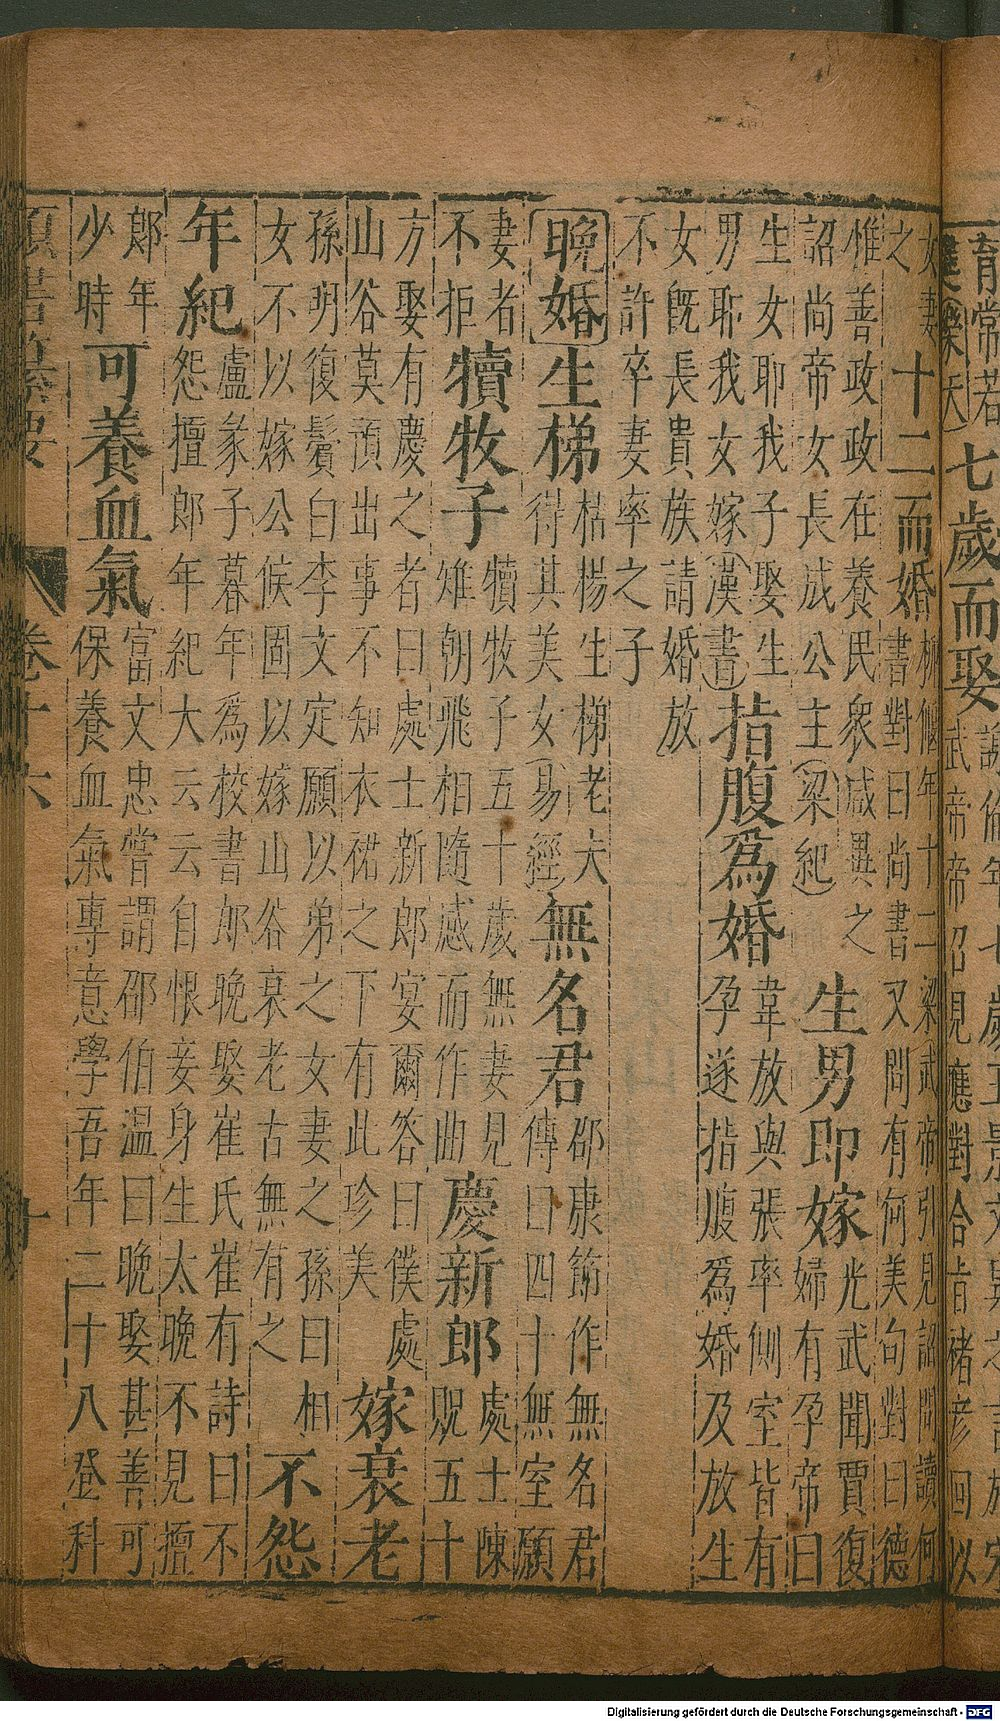 七歲而娶
武帝帝召見應對合旨褚彥回以
女妻
之
十二而婚
柳偃年十二梁武帝引見詔問讀何
書對曰尚書又問有何美句對曰德
惟善政政在養民衆咸異之
詔尚帝女長成公主(梁紀)
生男即嫁
光武聞賈復
婦有孕帝曰
生女耶我子娶生
男耶我女嫁(漢書)
指腹爲婚
韋放與張率側室皆有
孕遂指腹爲婚及放生
女旣長貴族請婚放
不許卒妻率之子
晚婚
生梯
枯楊生梯老夫
得其美女(易經)
無名君
邵康節作無名君
傳曰四十無室願
妻者
不拒
犢牧子
犢牧子五十歲無妻見
雉朝飛相隨感而作曲
慶新郎
處士陳
貺五十
方娶有慶之者曰處士新郎宴爾答曰僕處
山谷莫預出事不知衣裙之下有此珍美
嫁衰老
孫明復鬢白李文定願以弟之女妻之孫曰相
女不以嫁公侯固以嫁山谷衰老古無有之
不怨
年紀
盧彖子暮年爲校書郎晚娶崔氏崔有詩曰不
怨擅郎年紀大云云自恨妾身生太晚不見擅
郎年
少時
可養血氣
富文忠嘗謂邵伯温曰晚娶甚善可
保養血氣專意學吾年二十八登科
卷十六
十
Digitalisierung gefördert durch die Deutsche Forschungsgemeinschaft - DFG